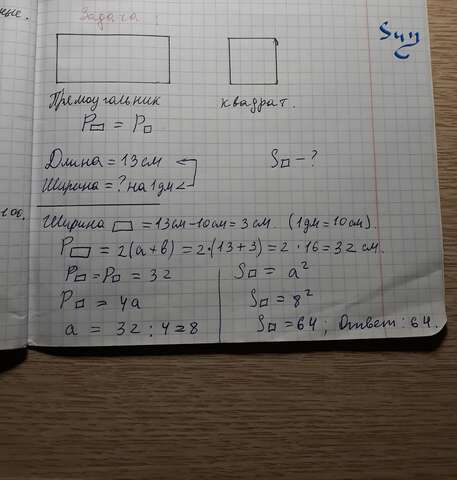 ные.
Задача:
Прямоугольник квадрат.
P▭ = P□
Длина = 13 см S□ - ?
Ширина = ? на 1 дм <
Ширина ▭ = 13 см - 10 см = 3 см. (1 дм = 10 см).
P▭ = 2(a + b) = 2·(13 + 3) = 2 · 16 = 32 см.
P▭ = P□ = 32
P□ = 4a
a = 32 : 4 = 8
S□ = a²
S□ = 8²
S□ = 64 ; Ответ: 64.